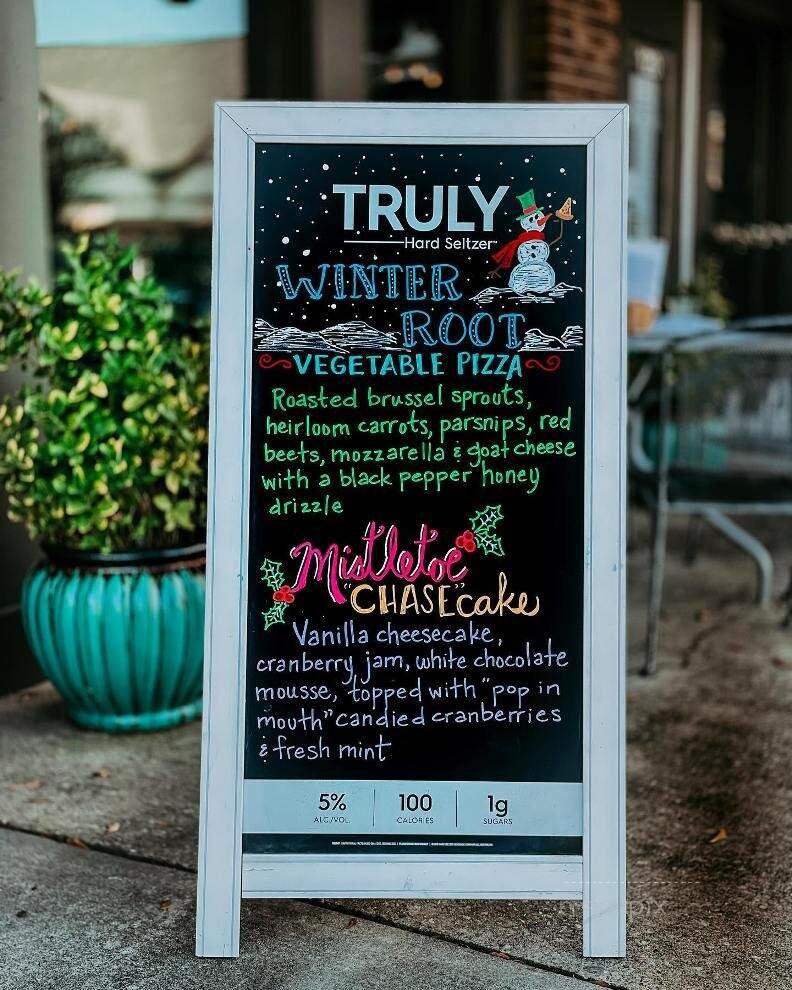 TRULY
Hard Seltzer
WINTER
ROOT
VEGETABLE PIZZA
Roasted brussel sprouts,
heirloom carrots, parsnips, red
beets, mozzarella & goat cheese
with a black pepper honey
drizzle
Mistletoe
"CHASE"cake
Vanilla cheesecake,
cranberry jam, white chocolate
mousse, topped with "pop in
mouth" candied cranberries
& fresh mint
5% 100 1g
ALC./VOL. CALORIES SUGARS